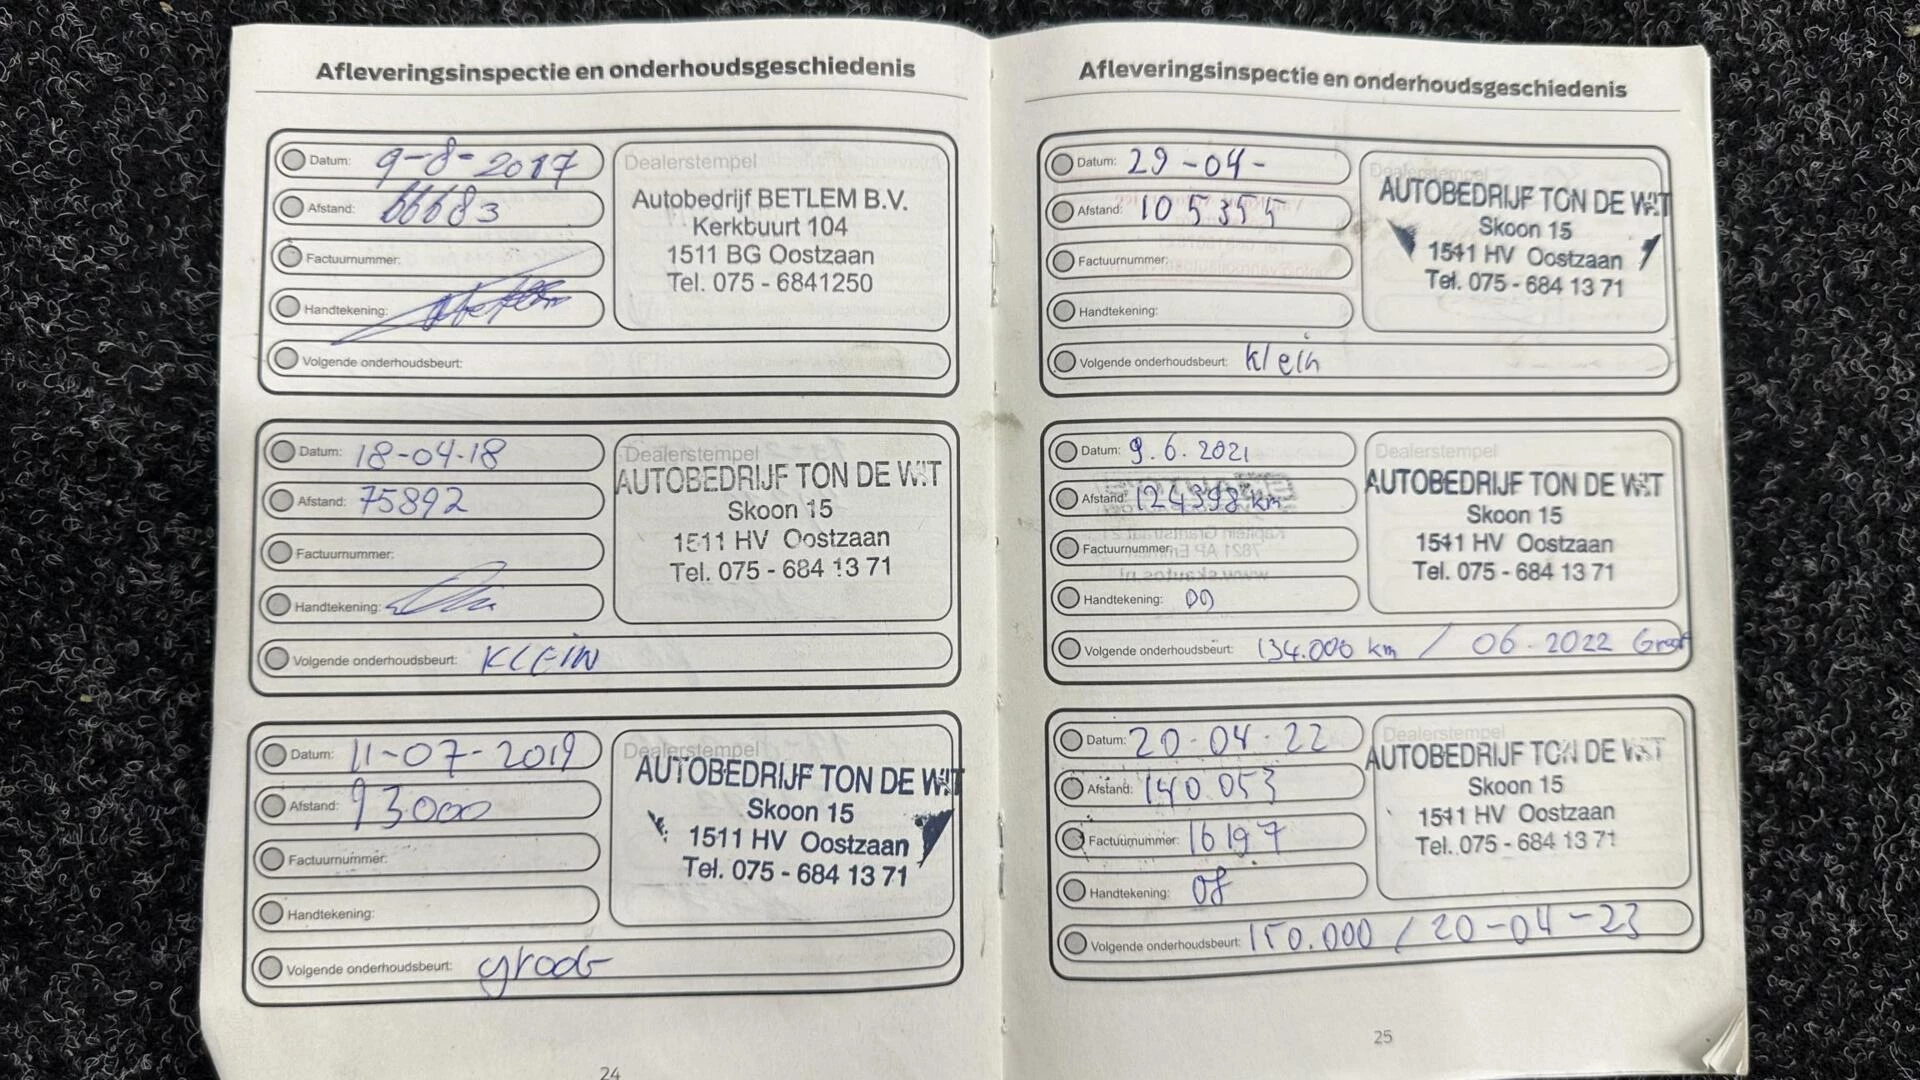 Afleveringsinspectie en onderhoudsgeschiedenis
Datum: 9-8-2017
Afstand: 66683
Factuurnummer:
Handtekening:
Volgende onderhoudsbeurt:
Dealerstempel
Autobedrijf BETLEM B.V.
Kerkbuurt 104
1511 BG Oostzaan
Tel. 075 - 6841250
Datum: 18-04-18
Afstand: 75892
Factuurnummer:
Handtekening:
Volgende onderhoudsbeurt: KLEIN
Dealerstempel
AUTOBEDRIJF TON DE WIT
Skoon 15
1511 HV Oostzaan
Tel. 075 - 684 13 71
Datum: 11-07-2019
Afstand: 93000
Factuurnummer:
Handtekening:
Volgende onderhoudsbeurt: groot
Dealerstempel
AUTOBEDRIJF TON DE WIT
Skoon 15
1511 HV Oostzaan
Tel. 075 - 684 13 71
24
Afleveringsinspectie en onderhoudsgeschiedenis
Datum: 29-04-
Afstand: 105355
Factuurnummer:
Handtekening:
Volgende onderhoudsbeurt: klein
Dealerstempel
AUTOBEDRIJF TON DE WIT
Skoon 15
1511 HV Oostzaan
Tel. 075 - 684 13 71
Datum: 9.6.2021
Afstand: 124398 km
Factuurnummer:
Handtekening:
Volgende onderhoudsbeurt: 134.000 km / 06.2022 Groot
Dealerstempel
AUTOBEDRIJF TON DE WIT
Skoon 15
1511 HV Oostzaan
Tel. 075 - 684 13 71
Datum: 20-04-22
Afstand: 140.053
Factuurnummer: 16197
Handtekening:
Volgende onderhoudsbeurt: 150.000 / 20-04-23
Dealerstempel
AUTOBEDRIJF TON DE WIT
Skoon 15
1511 HV Oostzaan
Tel. 075 - 684 13 71
25